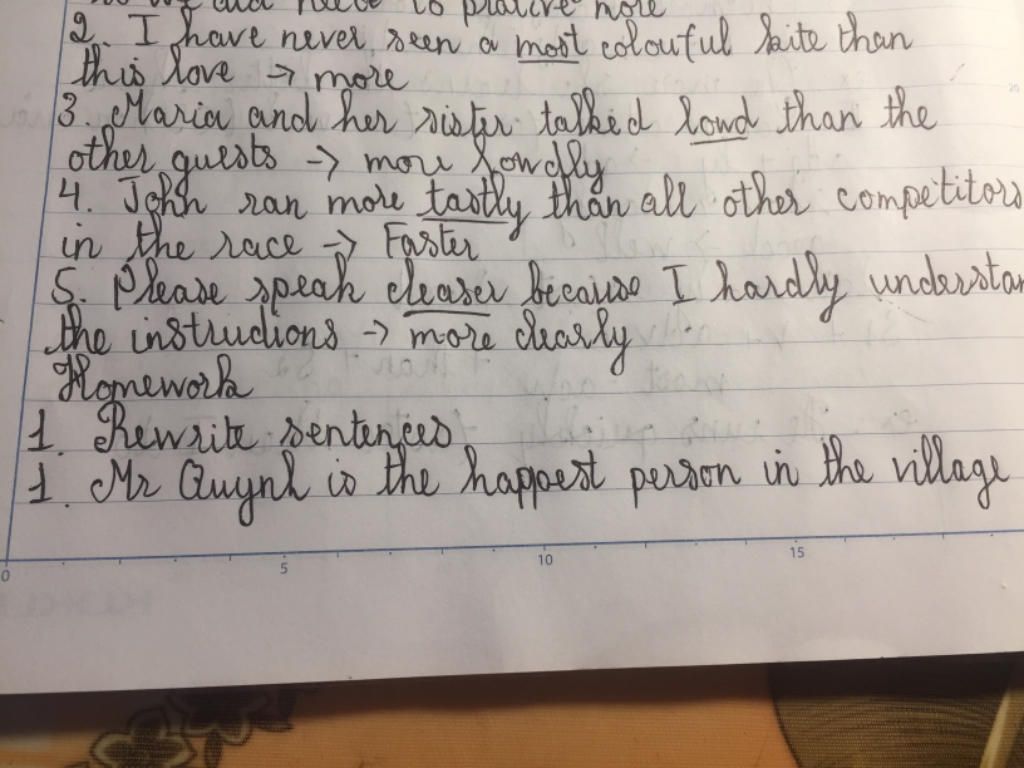 to prative more
2. I have never seen a most colouful kite than
this love → more
3. Maria and her sister talked loud than the
other guests → more lowdly
4. John ran more tastly than all other competitors
in the race → Faster
5. Please speak clearer because I hardly understan
the instructions → more clearly
Homework
1. Rewrite sentences
1. Mr Quynh is the happest person in the village
0 5 10 15
20